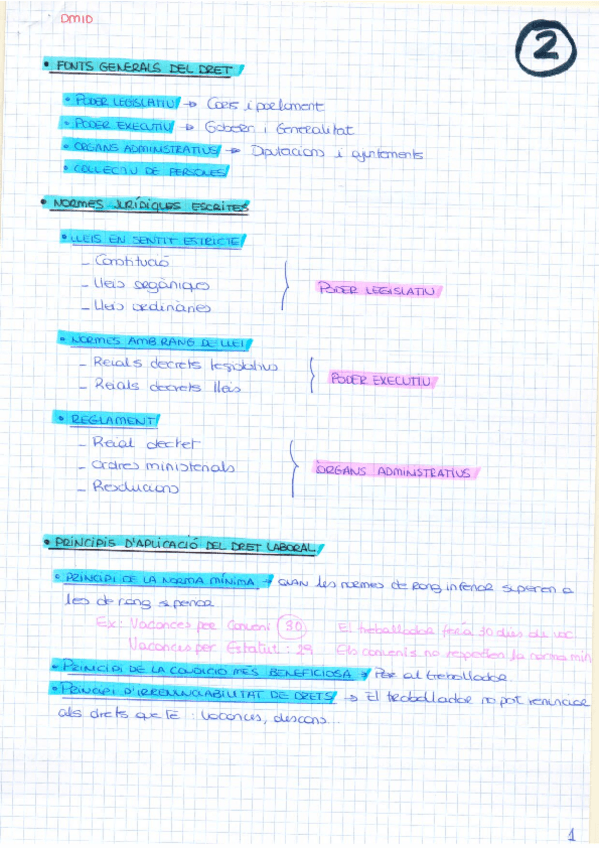 DM10
2
• FONTS GENERALS DEL DRET
• PODER LEGISLATIU → Corts i parlament
• PODER EXECUTIU → Gobern i Generalitat
• ÒRGANS ADMINISTRATIUS → Diputacions i ajuntaments
• COL·LECTIU DE PERSONES
• NORMES JURÍDIQUES ESCRITES
• LLEIS EN SENTIT ESTRICTE
- Constitució
- Lleis orgàniques
- Lleis ordinàries
PODER LEGISLATIU
• NORMES AMB RANG DE LLEI
- Reials decrets legislatius
- Reials decrets lleis
PODER EXECUTIU
• REGLAMENT
- Reial decret
- Ordres ministerials
- Resolucions
ÒRGANS ADMINISTRATIUS
• PRINCIPIS D'APLICACIÓ DEL DRET LABORAL
• PRINCIPI DE LA NORMA MÍNIMA → quan les normes de rang inferior superen a
les de rang superior
Ex: Vacances per Conveni 30 El treballador faria 30 dies de vac.
Vacances per Estatut: 29 Els convenis no respecten la norma min
• PRINCIPI DE LA CONDICIÓ MÉS BENEFICIOSA → Per al treballador
• PRINCIPI D'IRRENUNCIABILITAT DE DRETS → El treballador no pot renunciar
als drets que té: vacances, descans...
1